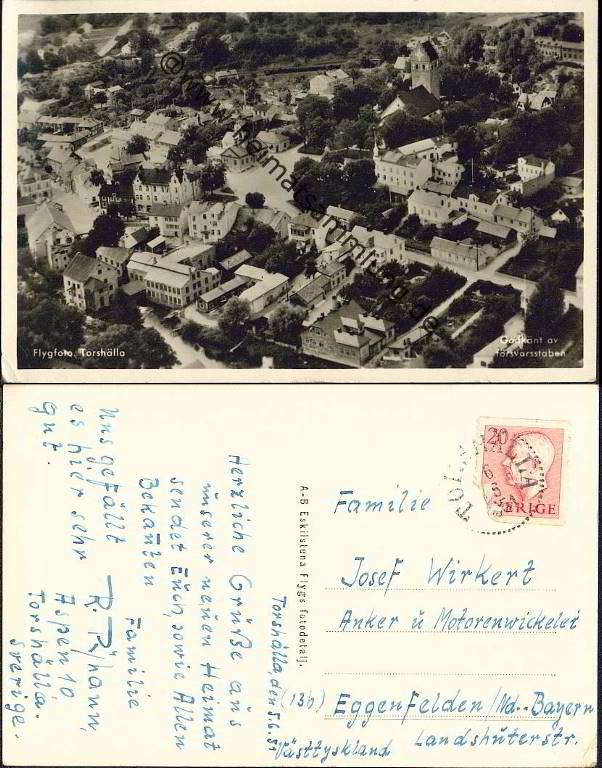 © www.heimatsammlung.de
Flygfoto. Torshälla
Godkänt av
försvarsstaben
Torshälla, den 5.6.51
Herzliche Grüße aus
unserer neuen Heimat
sendet Euch, sowie Allen
Bekanten
Familie
R. Rihann,
Uns gefällt
es hier sehr
gut.
Aspen 10,
Torshälla.
Sverige.
A-B Eskilstuna Flygs fotodetalj.
20
SVERIGE
TORSHÄLLA
Familie
Josef Wirkert
Anker u Motorenwickelei
(13b) Eggenfelden/Nd.-Bayern
Landshuterstr.
Västtyskland